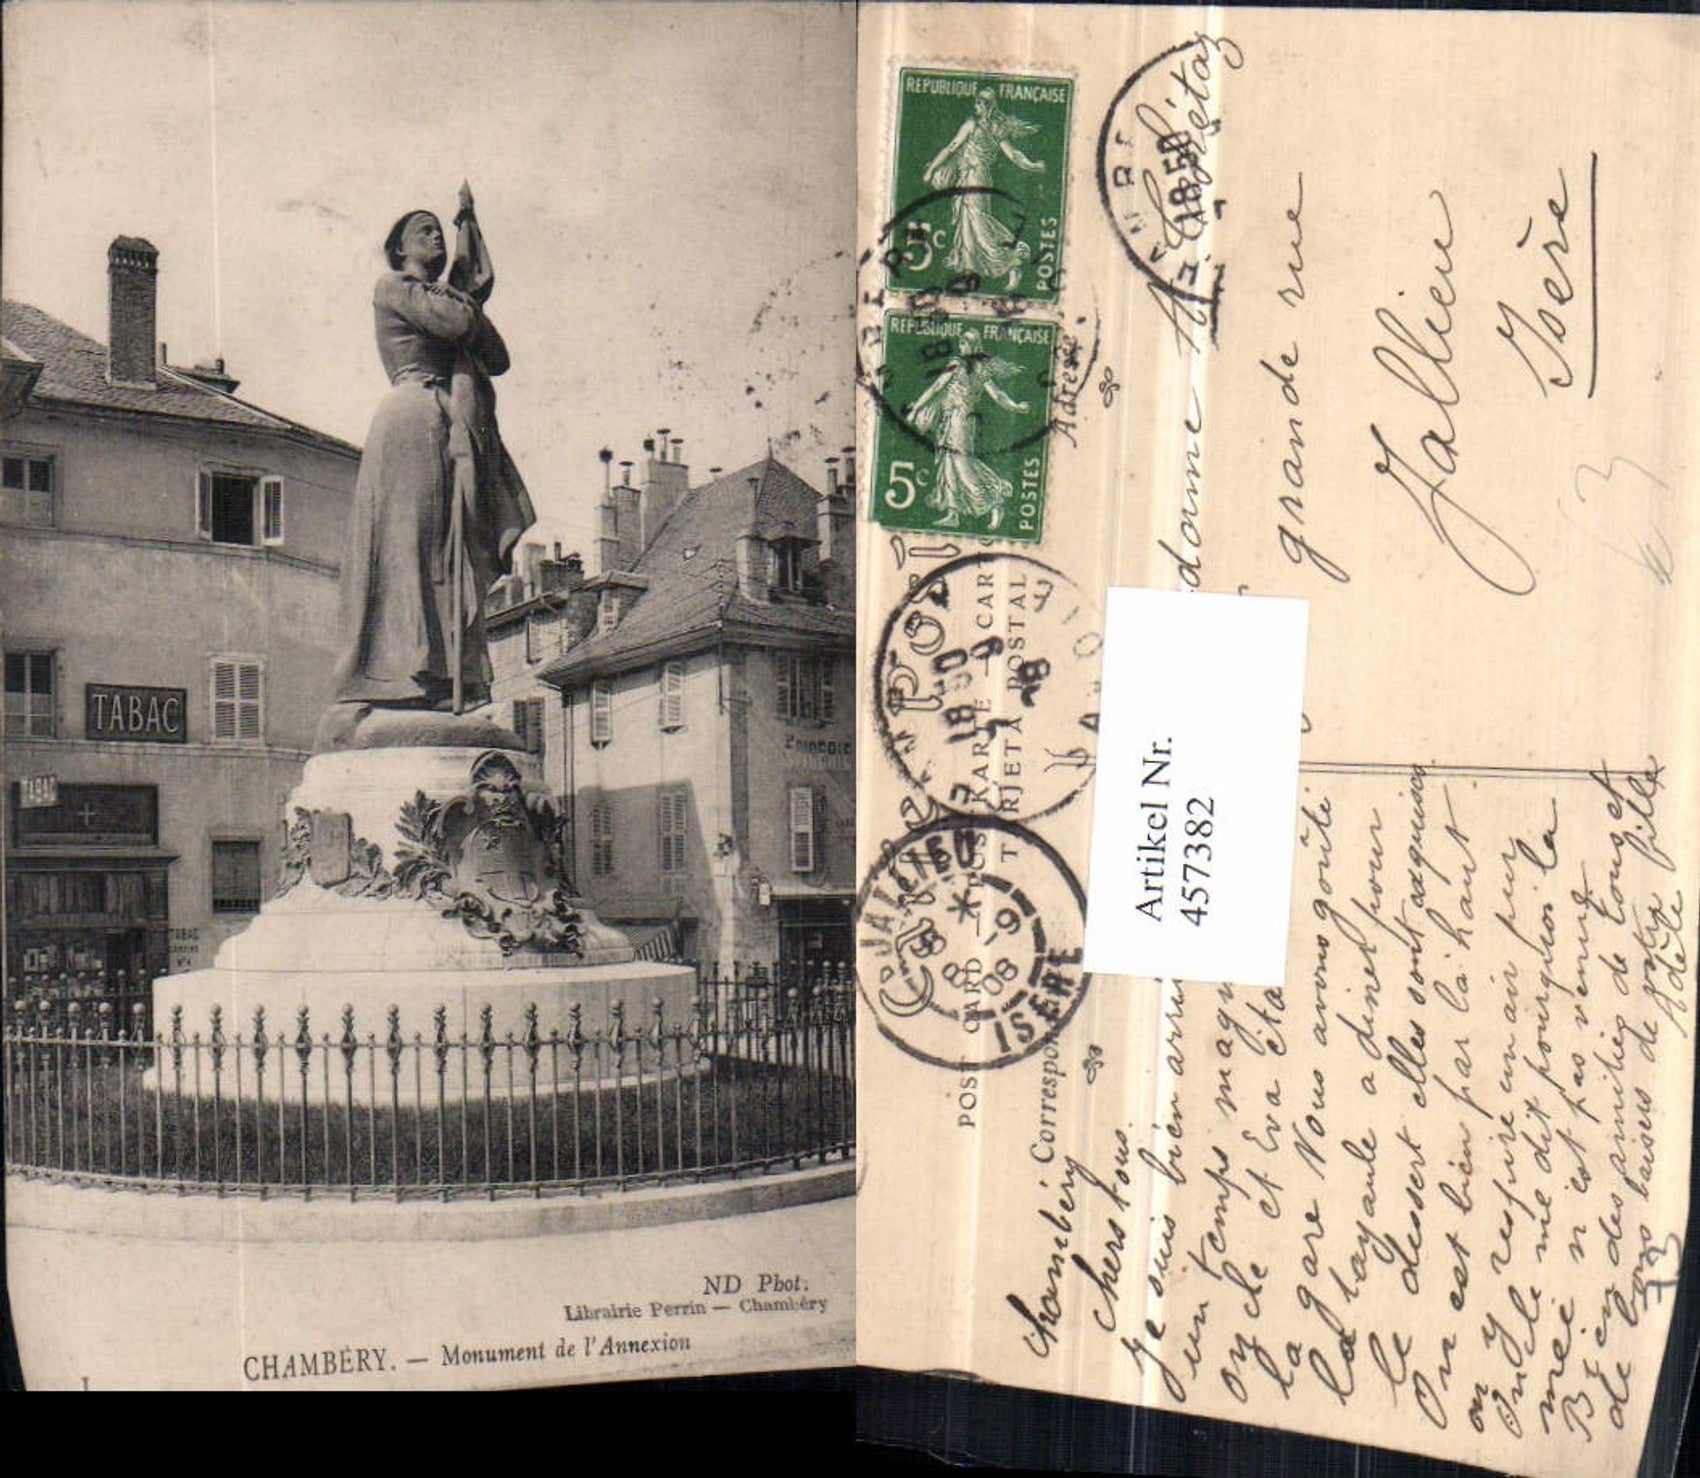 TABAC
TABAC
TABAC
ND Phot.
Librairie Perrin — Chambéry
CHAMBÉRY. — Monument de l'Annexion
REPUBLIQUE FRANÇAISE
5c
POSTES
REPUBLIQUE FRANÇAISE
5c
POSTES
18 50
CHAMBERY
18 50
JALLIEU
ISERE
8-9
08
POST CARD
Correspon
Adresse
Artikel Nr.
4573382
grande rue
Jallieu
Isère
Chambéry
Chers tous.
Je suis bien arri
un temps magn
oncle et Eva éta
la gare Nous avons goûté
la tayaule a dinet pour
le dessert elles sont exquises
On est bien par là haut
on y respire un air pur
Oncle me dit pourquoi la
mee n'est pas venue
Bien des amitiés de tous et
de bons baisers de votre fille
Adèle